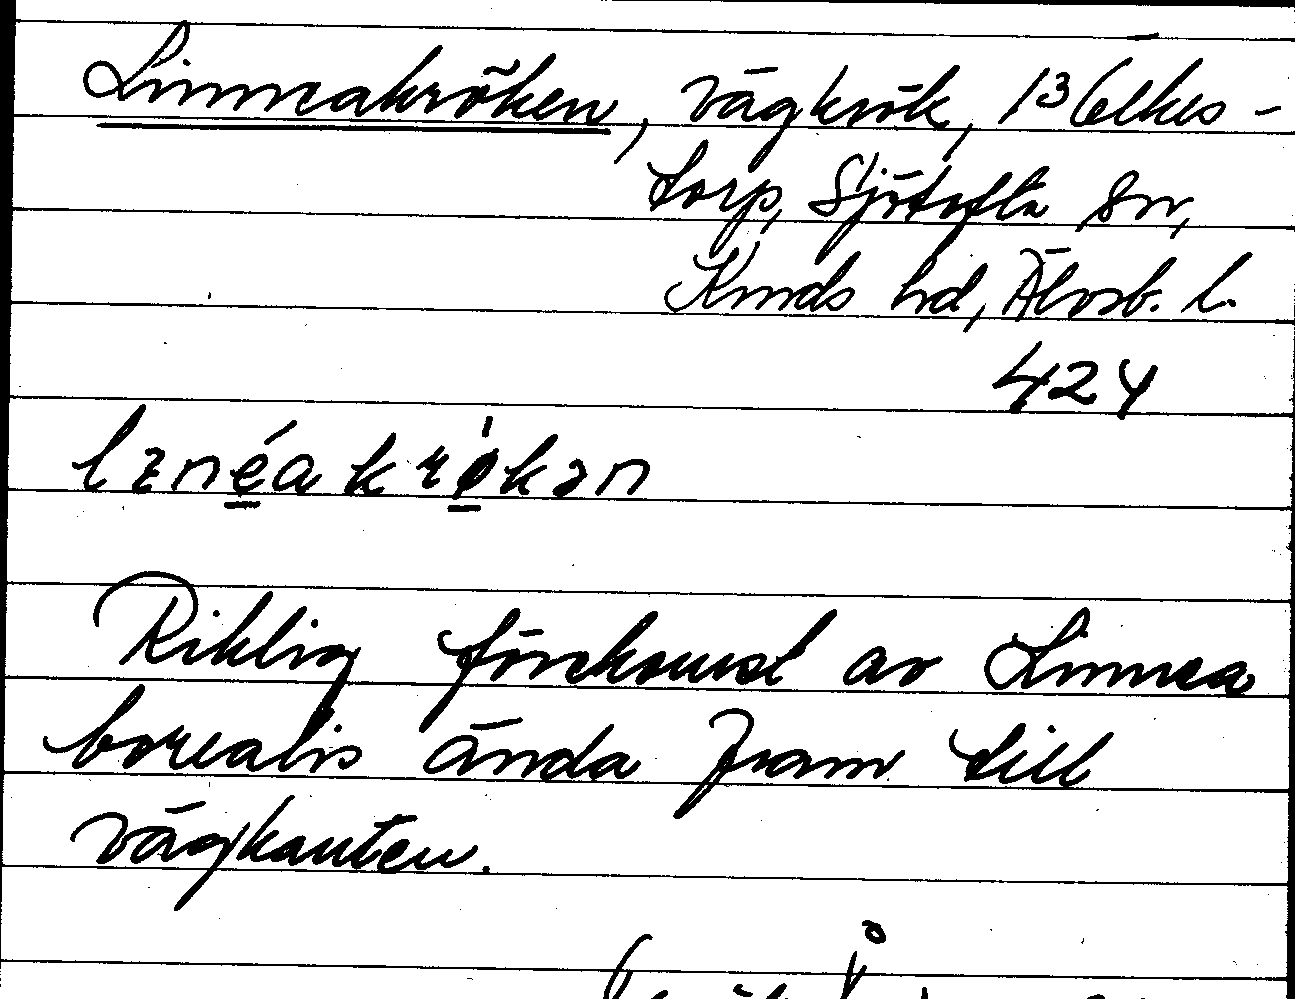 Linneakröken, vägkrök, 13 Ölkes-
torp, Sjötofta sn,
Kinds hd, Älvsb. l.
424
lɪnéakrøkən
Riklig förekomst av Linnea
borealis ända fram till
vägkanten.